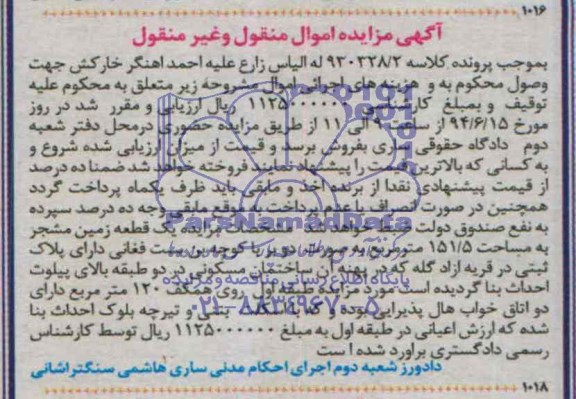 ۱۰۱۶
آگهی مزایده اموال منقول وغیر منقول
بموجب پرونده کلاسه ۹۲۰۳۲۸/۲ له الیاس زارع علیه احمد اهنگر خارکش جهت
وصول محکوم به و هزینه های اجرائی اموال مشروحه زیر متعلق به محکوم علیه
توقیف و بمبلغ کارشناسی ۱۱۲۵۰۰۰۰۰۰ ریال ارزیابی و مقرر شد در روز
مورخ ۹۴/۶/۱۵ از ساعت ۹ الی ۱۱ از طریق مزایده حضوری درمحل دفتر شعبه
دوم دادگاه حقوقی ساری بفروش برسد و قیمت از میزان ارزیابی شده شروع و
به کسانی که بالاترین قیمت را پیشنهاد نمایند فروخته خواهد شد ضمنا ده درصد
از قیمت پیشنهادی نقدا از برنده اخذ و مابقی باید ظرف یکماه پرداخت گردد
همچنین در صورت انصراف یا عدم پرداخت به موقع مابقی وجه ده درصد سپرده
به نفع صندوق دولت ضبط خواهد شد مشخصات مزایده یک قطعه زمین مشجر
به مساحت ۱۵۱/۵ متر مربع به صورت دو بر با کوچه بن بست فغانی دارای پلاک
ثبتی در قریه ازاد گله که در پهنه آن ساختمان مسکونی در دو طبقه بالای پیلوت
احداث بنا گردیده است مورد مزایده طبقه اول روی همکف ۱۲۰ متر مربع دارای
دو اتاق خواب هال پذیرایی بوده و کلا با بتنی و تیرچه بلوک احداث بنا
شده که ارزش اعیانی در طبقه اول به مبلغ ۱۱۲۵۰۰۰۰۰۰ ریال توسط کارشناس
رسمی دادگستری براورد شده است
دادورز شعبه دوم اجرای احکام مدنی ساری هاشمی سنگتراشانی
۱۰۱۸
ParsNamadData
پایگاه اطلاع رسانی مناقصه و مزایده
۰۲۱-۸۸۳۴۹۶۷۰-۵